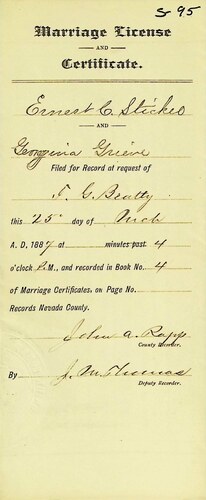 Sr 95
Marriage License
AND
Certificate.
Ernest C. Stickel
AND
Georgina Grieve
Filed for Record at request of
F. G. Beatty
this 25" day of Mch
A. D. 1887 at minutes past 4
o'clock P.M., and recorded in Book No. 4
of Marriage Certificates, on Page No.
Records Nevada County.
John A. Rapp
County Recorder.
By J. M. Thomas
Deputy Recorder.